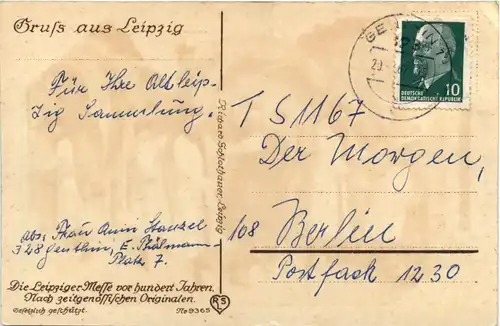 Gruß aus Leipzig
Für Ihre Altleip-
zig Sammlung.
Abs. Frau Anni Stanzel
328 Genthin, E. Thälmann
Platz 7.
Die Leipziger Messe vor hundert Jahren.
Nach zeitgenössischen Originalen.
Gesetzlich geschützt.
No 9365
RS
Richard Schlothauer, Leipzig
DEUTSCHE
DEMOKRATISCHE REPUBLIK
10
TS 1167
Der Morgen,
108 Berlin
Postfach 1230